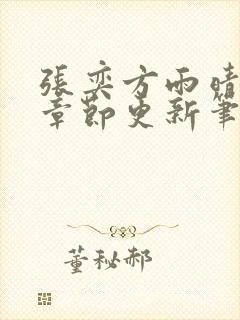 張奕方雨晴
章節更新筆
董秘郝